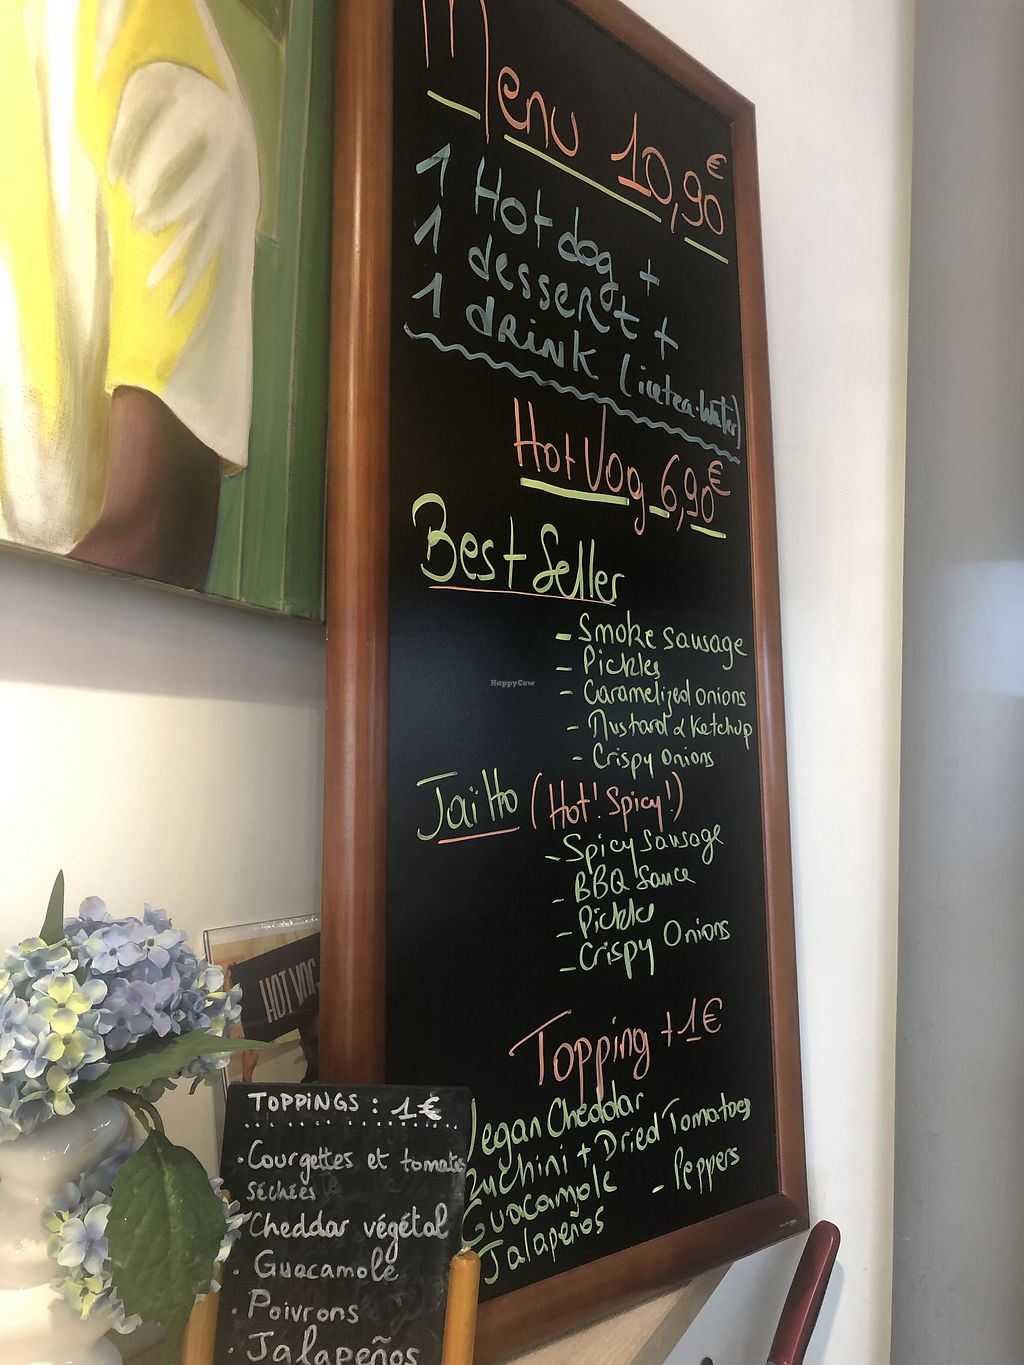 Menu 10,90€
1 Hot dog +
1 dessert +
1 drink (icetea.water)
Hot Vog 6,90€
Best Seller
- Smoke sausage
- Pickles
- Caramelized onions
- Mustard & Ketchup
- Crispy onions
Jaïtto (Hot! Spicy!)
- Spicy Sausage
- BBQ Sauce
- Pickles
- Crispy Onions
Topping +1€
Vegan Cheddar
Zuchini + Dried Tomatoes
Guacamole - Peppers
Jalapeños
HOT VOG
TOPPINGS : 1€
. Courgettes et tomates
séchées
. Cheddar végétal
. Guacamole
. Poivrons
. Jalapeños
HappyCow